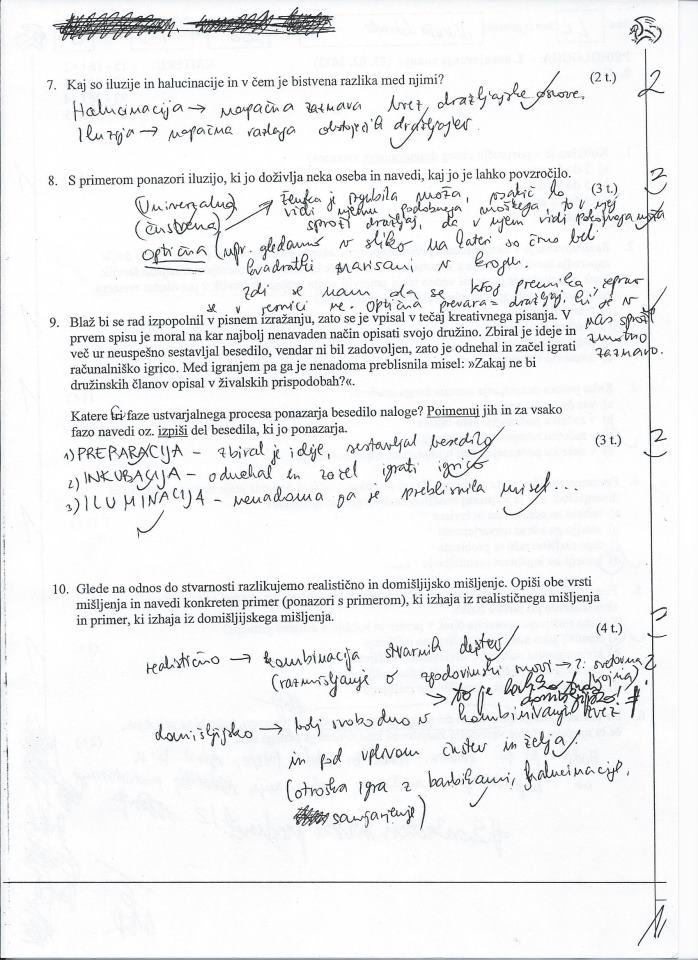 7. Kaj so iluzije in halucinacije in v čem je bistvena razlika med njimi? (2 t.) 2
Halucinacija → napačna zaznava brez dražljajske osnove.
Iluzija → napačna razlaga obstoječih dražljajev.
8. S primerom ponazori iluzijo, ki jo doživlja neka oseba in navedi, kaj jo je lahko povzročilo.
(3 t.) 3
(Univerzalna) ženska je izgubila moža, potem ko
(čustvena) vidi njemu podobnega moškega, to v njej
sproži dražljaj, da v njem vidi pokojnega moža
optična (npr. gledamo v sliko na kateri so črno beli
kvadratki narisani v krogu.
Zdi se nam da se krog premika, čeprav
se v resnici ne. Optična prevara = dražljaj, ki se v
nas sproži
zmotno
zaznavo.
9. Blaž bi se rad izpopolnil v pisnem izražanju, zato se je vpisal v tečaj kreativnega pisanja. V
prvem spisu je moral na kar najbolj nenavaden način opisati svojo družino. Zbiral je ideje in
več ur neuspešno sestavljal besedilo, vendar ni bil zadovoljen, zato je odnehal in začel igrati
računalniško igrico. Med igranjem pa ga je nenadoma preblisnila misel: »Zakaj ne bi
družinskih članov opisal v živalskih prispodobah?«.
Katere tri faze ustvarjalnega procesa ponazarja besedilo naloge? Poimenuj jih in za vsako
fazo navedi oz. izpiši del besedila, ki jo ponazarja.
(3 t.) 3
1) PREPARACIJA – zbiral je ideje, sestavljal besedilo
2) INKUBACIJA – odnehal in začel igrati igrico
3) ILUMINACIJA – nenadoma ga je preblisnila misel...
10. Glede na odnos do stvarnosti razlikujemo realistično in domišljijsko mišljenje. Opiši obe vrsti
mišljenja in navedi konkreten primer (ponazori s primerom), ki izhaja iz realističnega mišljenja
in primer, ki izhaja iz domišljijskega mišljenja.
(4 t.) 3
realistično → kombinacija stvarnih dejstev
(razmišljanje o zgodovinski snovi → 2. svetovna
vojna)
→ to je lahko tudi
domišljijsko!
domišljijsko → bolj svobodno v kombiniranju brez
in pod vplivom čustev in želja.
(otroška igra z barbikami, halucinacije,
sanjarjenje)
11